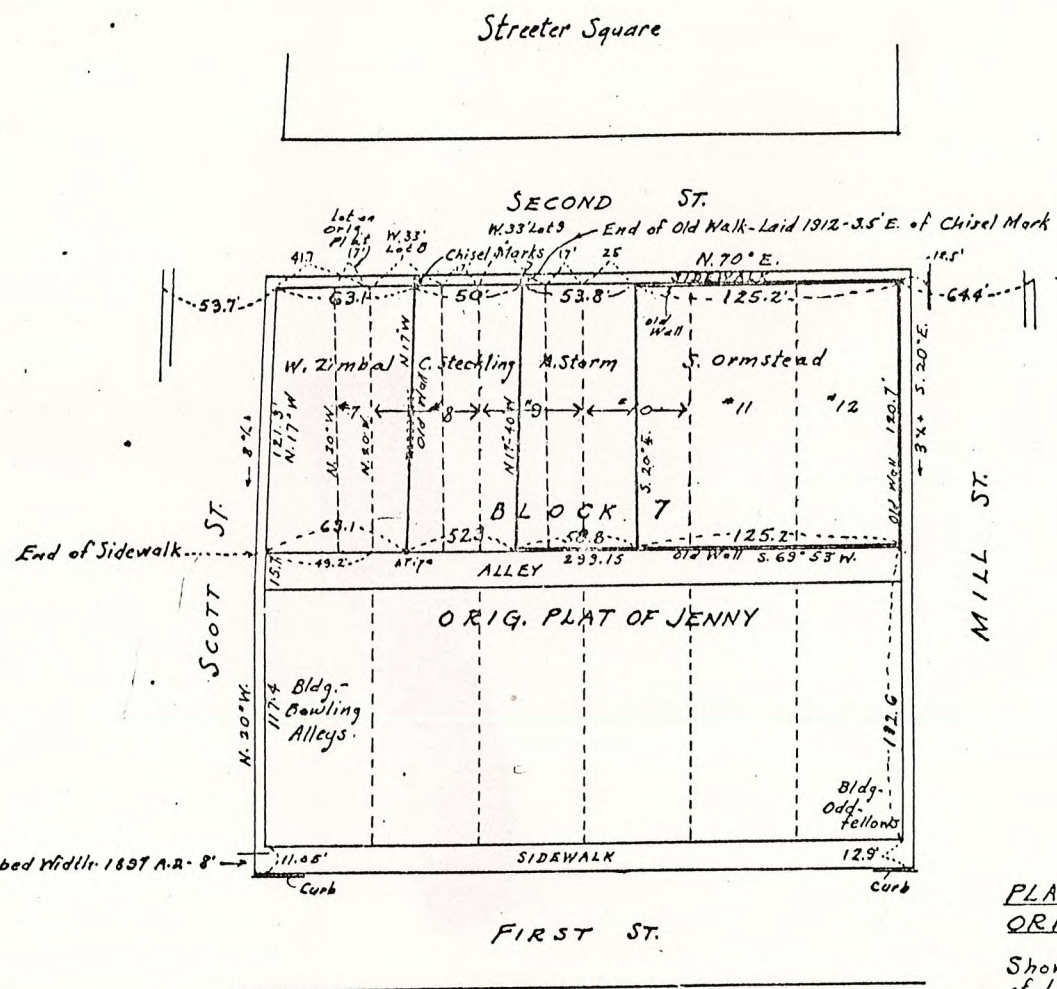 Streeter Square
SECOND ST.
Lot on
Orig.
Plat
17'
W. 33'
Lot 8
W. 33' Lot 9
End of Old Walk-Laid 1912-3.5' E. of Chisel Mark
Chisel Marks
41.7
17'
17'
25
N. 70° E.
SIDEWALK
12.5'
53.7'
63.1
50
53.8
125.2'
64.4'
Old
Wall
W. Zimbal
C. Steckling
A. Storm
S. Ormstead
N 17° W
Old Wall
#7
#8
#9
#11
#12
121.3'
N. 17° W
N. 20° W
N. 20° W
N 17°-40' W
S. 20° E.
Old Wall 120.7'
S. 20° E.
BLOCK 7
63.1
52.3
58.8
125.2'
End of Sidewalk
15.7
49.2'
299.15
Old Wall
S. 69° 53' W.
ALLEY
ORIG. PLAT OF JENNY
SCOTT ST.
MILL ST.
N. 20° W.
117.4
Bldg.-
Bowling
Alleys.
182.6
Bldg-
Odd-
fellows
bed Width 1897 A.D- 8'
11.05'
SIDEWALK
12.9'
Curb
Curb
FIRST ST.
PLA
ORI
Show
of L